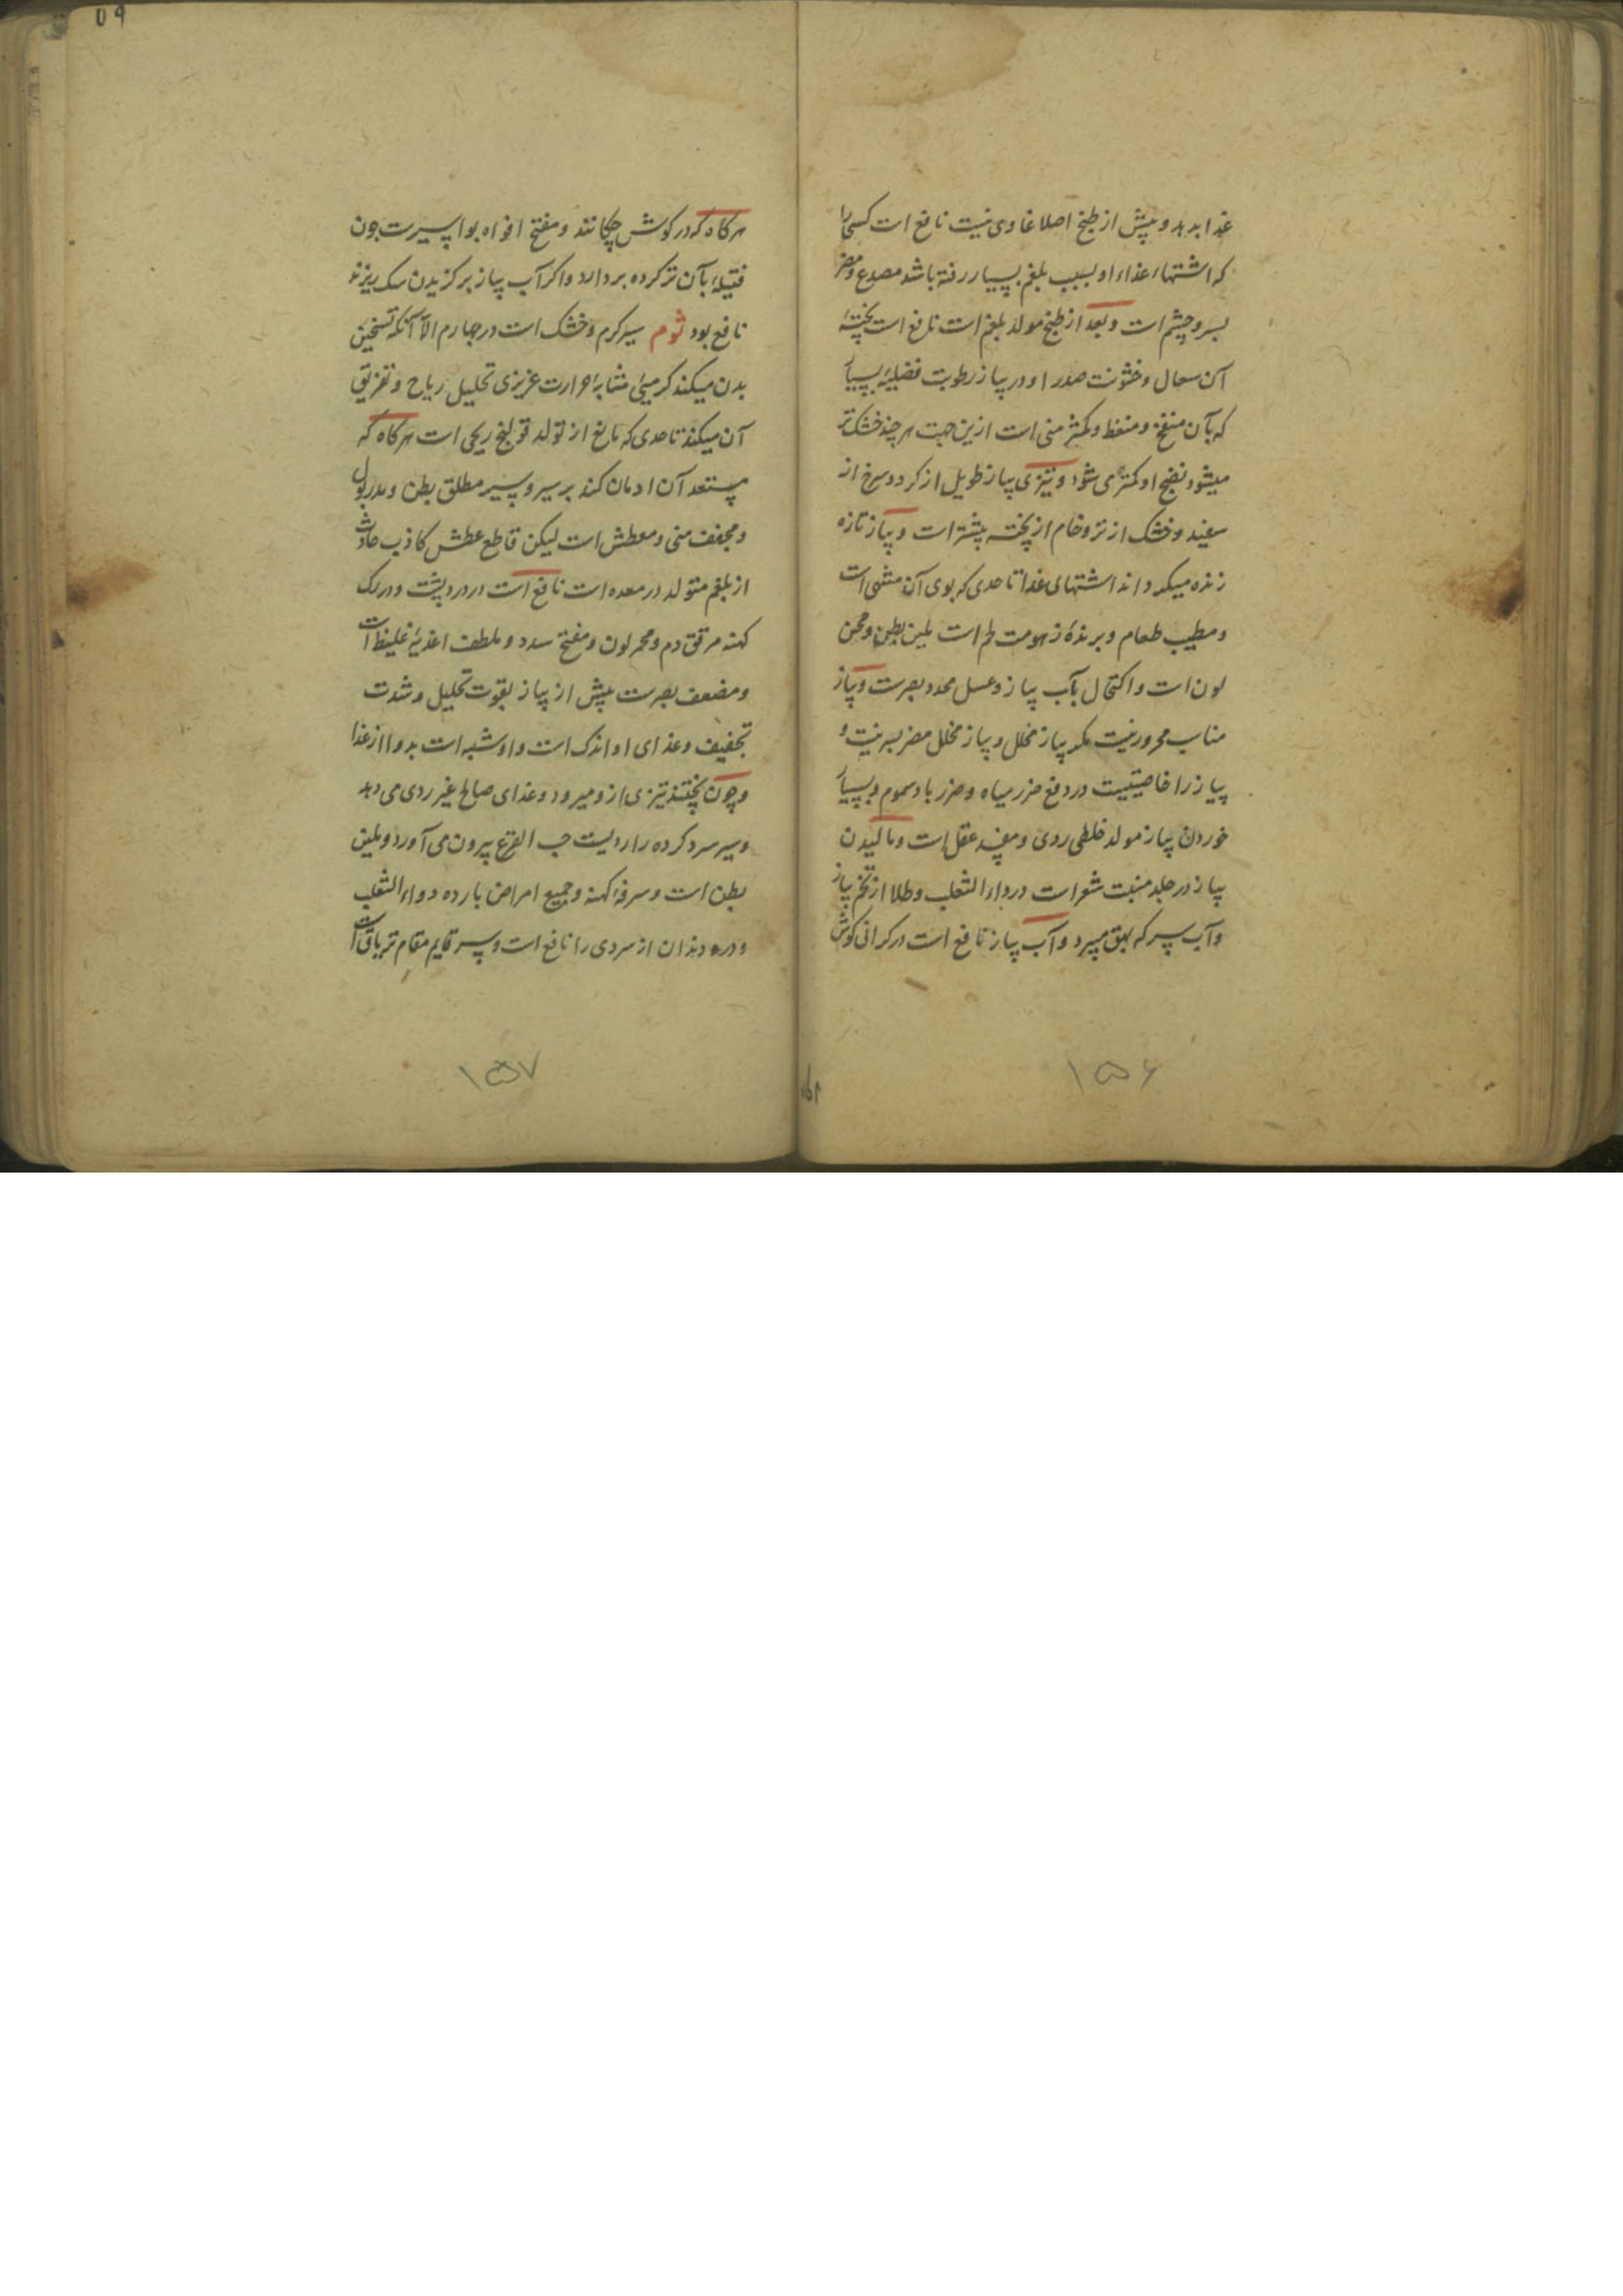 غذا بدهد و پیش از طبخ اصلا غاذی نیست نافع است کسی را
که اشتهاء غذاء او بسبب بلغم بسیار رفته باشد مصدع و مضر
بسر و چشم است و بعد از طبخ مولد بلغم است نافع است پخته
آن سعال و خشونت صدر او در پیاز رطوبت فضلیه بسیار
که بآن منفخ و منعظ و مکثر منی است ازین جهت هر چند خشک تر
میشود نفخ او کمتر می شود و تیزی پیاز طویل از کرد و سرخ از
سفید و خشک از تر و خام از پخته بیشتر است و پیاز تازه
زنده میکرداند اشتهای غذا تا حدی که بوی آن مشهی است
و مطیب طعام و برندهٔ زهومت لحم است ملین بطن و محسن
لون است و اکتحال بآب پیاز و عسل محدد بصرست و پیاز
مناسب محرور نیست مکر پیاز مخلل و پیاز مخلل مضر بسر نیست و
پیاز را خاصیتیست در دفع ضرر میاه و ضرر باد سموم و بسیار
خوردن پیاز مولد خلطی ردی و مفسد عقل است و مالیدن
پیاز در جلد منبت شعر است در داء الثعلب و طلا از تخم پیاز
و آب سرکه بهق میبرد و آب پیاز نافع است در کرانی کوش
۱۵۶
هر کاه که در کوش چکانند و مفتح افواه بواسیرست چون
فتیلهٔ بآن تر کرده بردارد و اکر آب پیاز بر کزیدن سک ریزند
نافع بود ثوم سیر کرم و خشک است در چهارم الا آنکه تسخین
بدن میکند کرمیی مشابهٔ حرارت عزیزی تحلیل ریاح و تفریق
آن میکند تا حدی که مانع از تولد قولنج ریحی است هر کاه که
مستعد آن ادمان کند بر سیر و سیر مطلق بطن و مدر بول
و مجفف منی و معطش است لیکن قاطع عطش کاذب حادث
از بلغم متولد در معده است نافع است از درد پشت و درد رک
کهنه مرقق دم و محمر لون و مفتح سدد و ملطف اغذیهٔ غلیظ است
و مضعف بصرست بیش از پیاز بقوت تحلیل و شدت
تجفیف و غذای او اندک است و او شبه است بدوا از غذا
و چون پختند تیزی ازو میرود و غذای صالح غیر ردی می دهد
و سیر سرد کرده را ردیست حب القرع بیرون می آورد و ملین
بطن است و سرفهٔ کهنه و جمیع امراض بارده و داء الثعلب
و درد دندان از سردی را نافع است و سیر قایم مقام تریاق است
۱۵۷